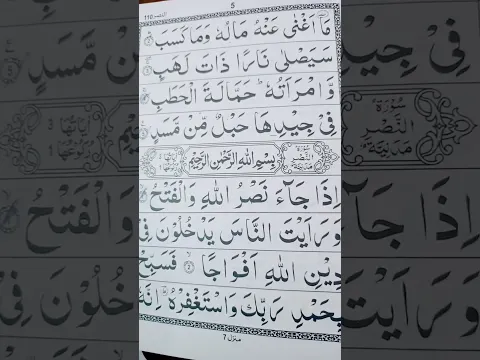 5
110
مَاۤ اَغْنٰى عَنْهُ مَالُهٗ وَمَا كَسَبَ ۲
سَيَصْلٰى نَارًا ذَاتَ لَهَبٍ
وَّامْرَاَتُهٗ ؕ حَمَّالَةَ الْحَطَبِ
فِيْ جِيْدِهَا حَبْلٌ مِّنْ مَّسَدٍ
سُوْرَةُ النَّصْرِ مَدَنِيَّةٌ بِسْمِ اللهِ الرَّحْمٰنِ الرَّحِيْمِ
اِذَا جَآءَ نَصْرُ اللهِ وَالْفَتْحُ
وَرَاَيْتَ النَّاسَ يَدْخُلُوْنَ فِيْ
دِيْنِ اللهِ اَفْوَاجًا ۲ فَسَبِّحْ
بِحَمْدِ رَبِّكَ وَاسْتَغْفِرْهُ ؕ اِنَّهٗ
منزل ۷